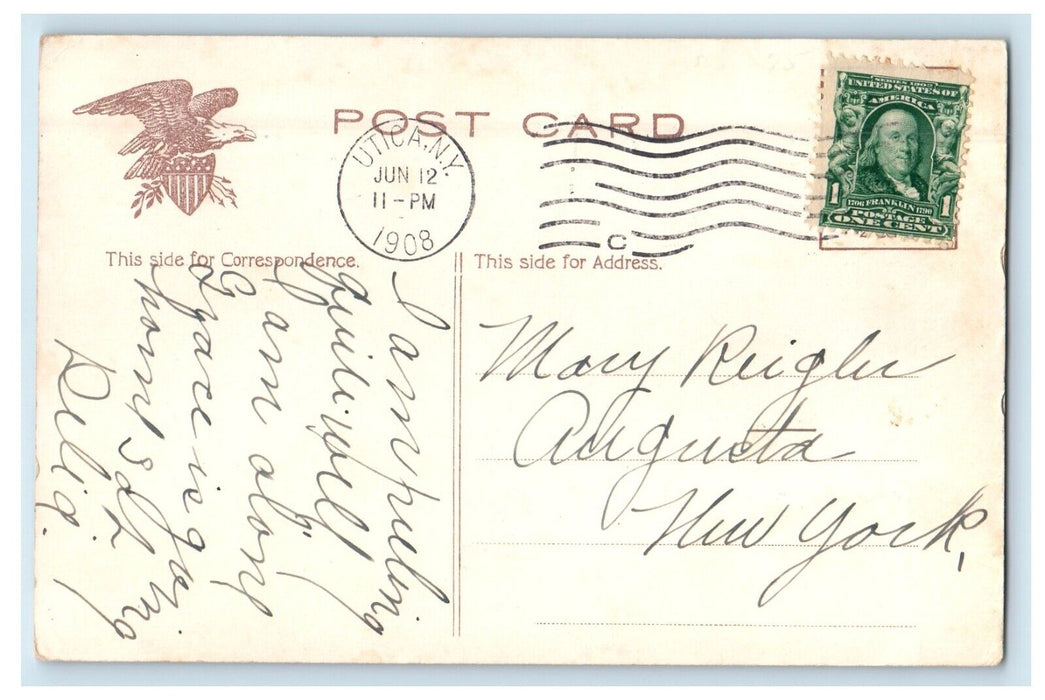 POST CARD
UTICA, N.Y.
JUN 12
11-PM
1908
C
SERIES 1902
UNITED STATES OF
AMERICA
1
1706 FRANKLIN 1790
POSTAGE
ONE CENT
1
This side for Correspondence.
This side for Address.
I am feeling
quite well,
I am alone
Grace is going
home Sat
Mary Reigler
Augusta
New York,